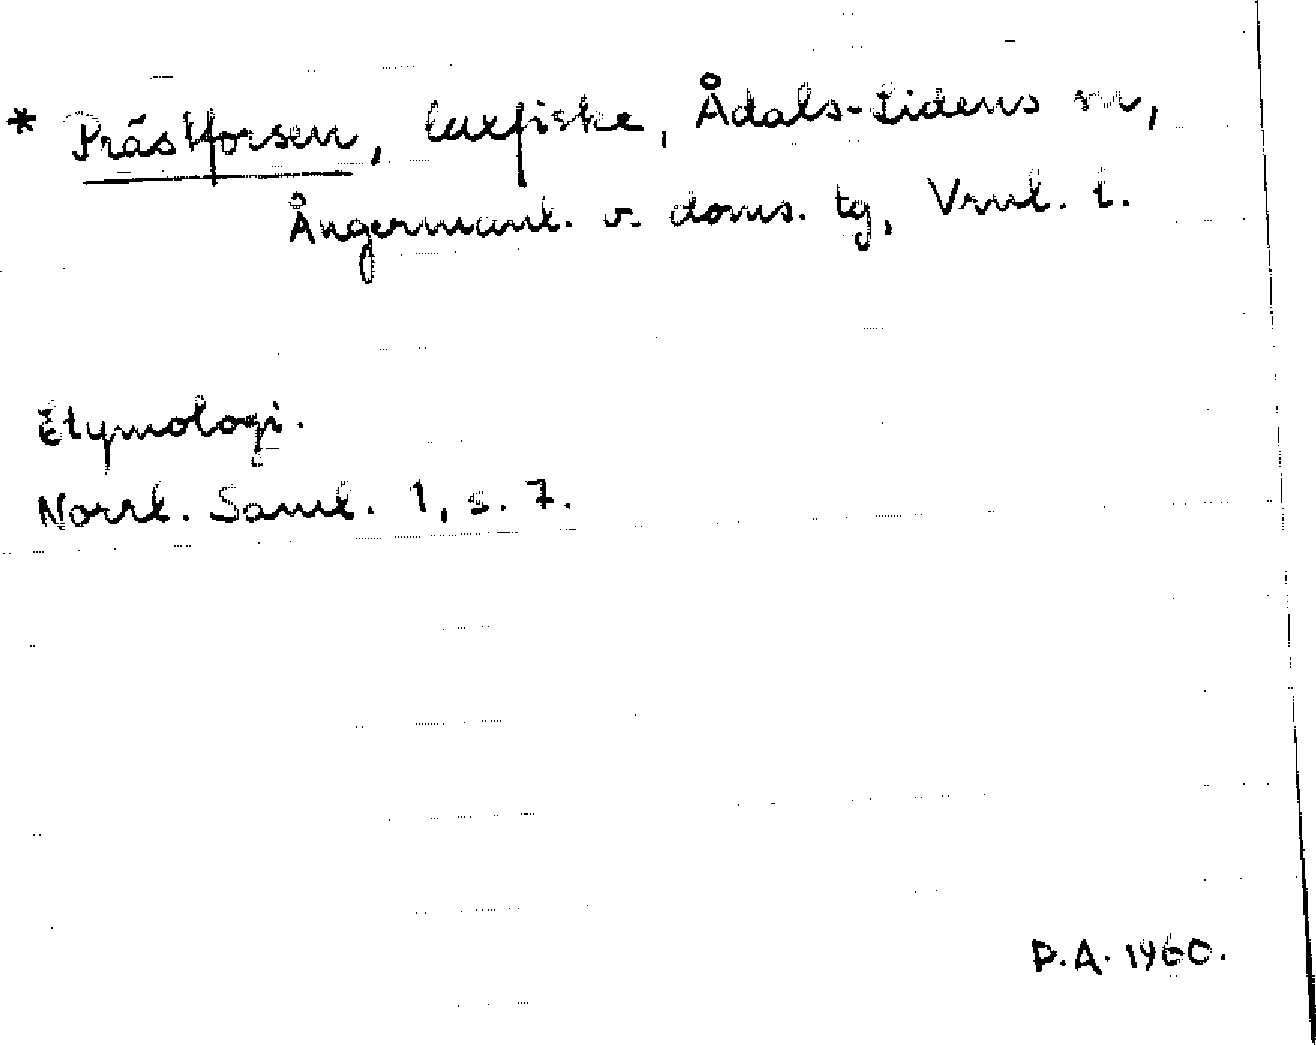 * Prästforsen, laxfiske, Ådals-Lidens sn,
Ångermanl. v. doms. tg, Vrnl. l.
Etymologi.
Norrl. Saml. 1, s. 7.
P.A. 1960.